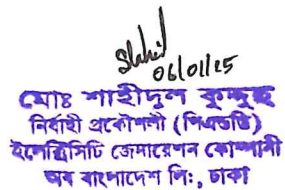 Shahid
06/01/25
মোঃ শাহীদুল কুদ্দুছ
নির্বাহী প্রকৌশলী (পিএন্ডডি)
ইলেক্ট্রিসিটি জেনারেশন কোম্পানী
অব বাংলাদেশ লিঃ, ঢাকা